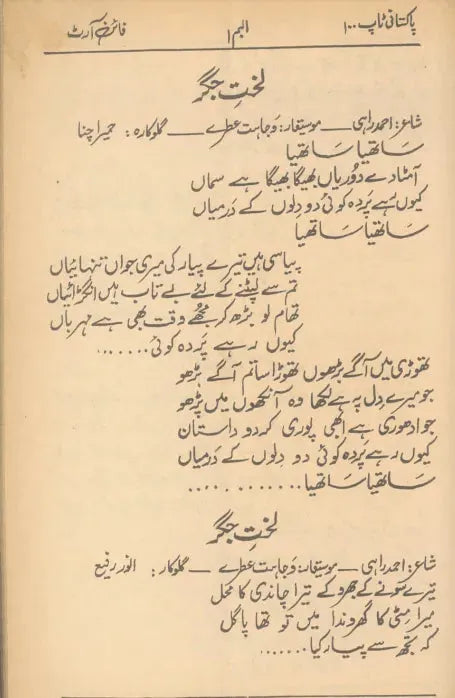 پاکستانی ٹاپ ۱۰۰
البم ۱
فائن آرٹ
لختِ جگر
شاعر: احمد راہی — موسیقار: وجاہت عطرے — گلوکارہ: حمیرا چنا
ساتھیا ساتھیا
آ مٹا دے دُوریاں بھیگا بھیگا ہے سماں
کیوں رہے پَردہ کوئی دو دِلوں کے دَرمیاں
ساتھیا ساتھیا
پیاسی ہیں تیرے پیار کی میری جواں تنہائیاں
تم سے لپٹنے کے لئے بے تاب ہیں انگڑائیاں
تھام لو بڑھ کر مجھے وقت بھی ہے مہرباں
کیوں رہے پَردہ کوئی.......
تھوڑی میں آگے بڑھوں تھوڑا سا تم آگے بڑھو
جو میرے دِل پہ ہے لکھا وہ آنکھوں میں پڑھو
جو ادھوری ہے ابھی پوری کر دو داستان
کیوں رہے پَردہ کوئی دو دِلوں کے دَرمیاں
ساتھیا ساتھیا...........
لختِ جگر
شاعر: احمد راہی — موسیقار: وجاہت عطرے — گلوکار: انور رفیع
تیرے سونے کے جھروکے تیرا چاندی کا محل
میرا مٹی کا گھروندا میں تو تھا پاگل
کہ تجھ سے پیار کیا.......